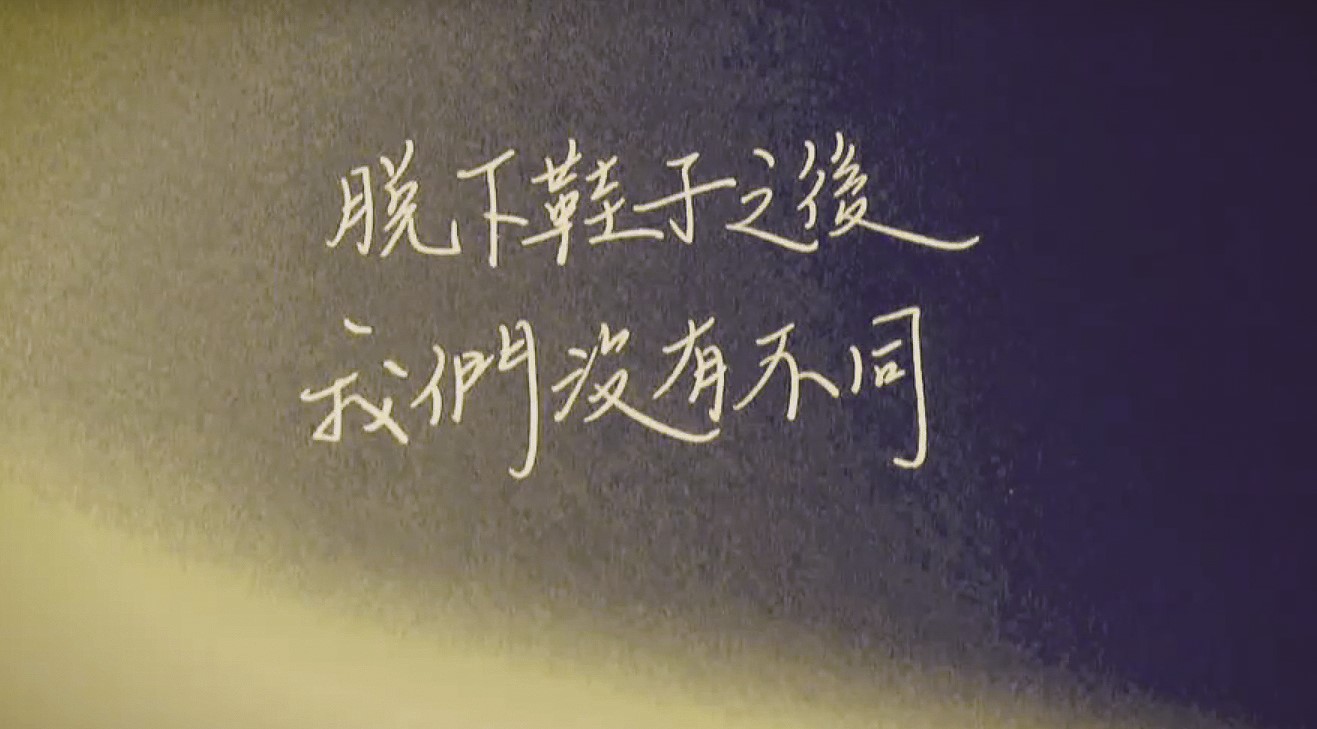 脫下鞋子之後
我們沒有不同